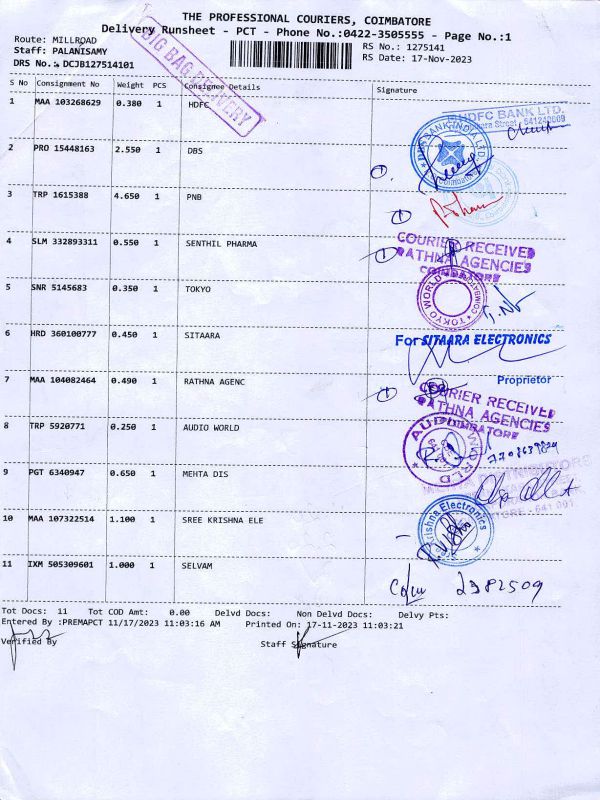 THE PROFESSIONAL COURIERS, COIMBATORE
Delivery Runsheet - PCT - Phone No.:0422-3505555 - Page No.:1
Route: MILLROAD
RS No.: 1275141
Staff: PALANISAMY
RS Date: 17-Nov-2023
DRS No.: DCJB127514101
BIG BAG DELIVERY
S No Consignment No Weight PCS Consignee Details Signature
1 MAA 103268629 0.380 1 HDFC
HDFC BANK LTD.
Street - 641240009
2 PRO 15448163 2.550 1 DBS
DBS BANK INDIA LTD.
3 TRP 1615388 4.650 1 PNB
4 SLM 332893311 0.550 1 SENTHIL PHARMA
COURIER RECEIVED
RATHNA AGENCIES
COIMBATORE
5 SNR 5145683 0.350 1 TOKYO
TOKYO WORLD
6 HRD 360100777 0.450 1 SITAARA
For SITAARA ELECTRONICS
Proprietor
7 MAA 104082464 0.490 1 RATHNA AGENC
COURIER RECEIVED
RATHNA AGENCIES
COIMBATORE
8 TRP 5920771 0.250 1 AUDIO WORLD
AUDIO WORLD
9 PGT 6340947 0.650 1 MEHTA DIS
10 MAA 107322514 1.100 1 SREE KRISHNA ELE
Krishna Electronics
11 IXM 505309601 1.000 1 SELVAM
Tot Docs: 11 Tot COD Amt: 0.00 Delvd Docs: Non Delvd Docs: Delvy Pts:
Entered By :PREMAPCT 11/17/2023 11:03:16 AM Printed On: 17-11-2023 11:03:21
Verified By Staff Signature